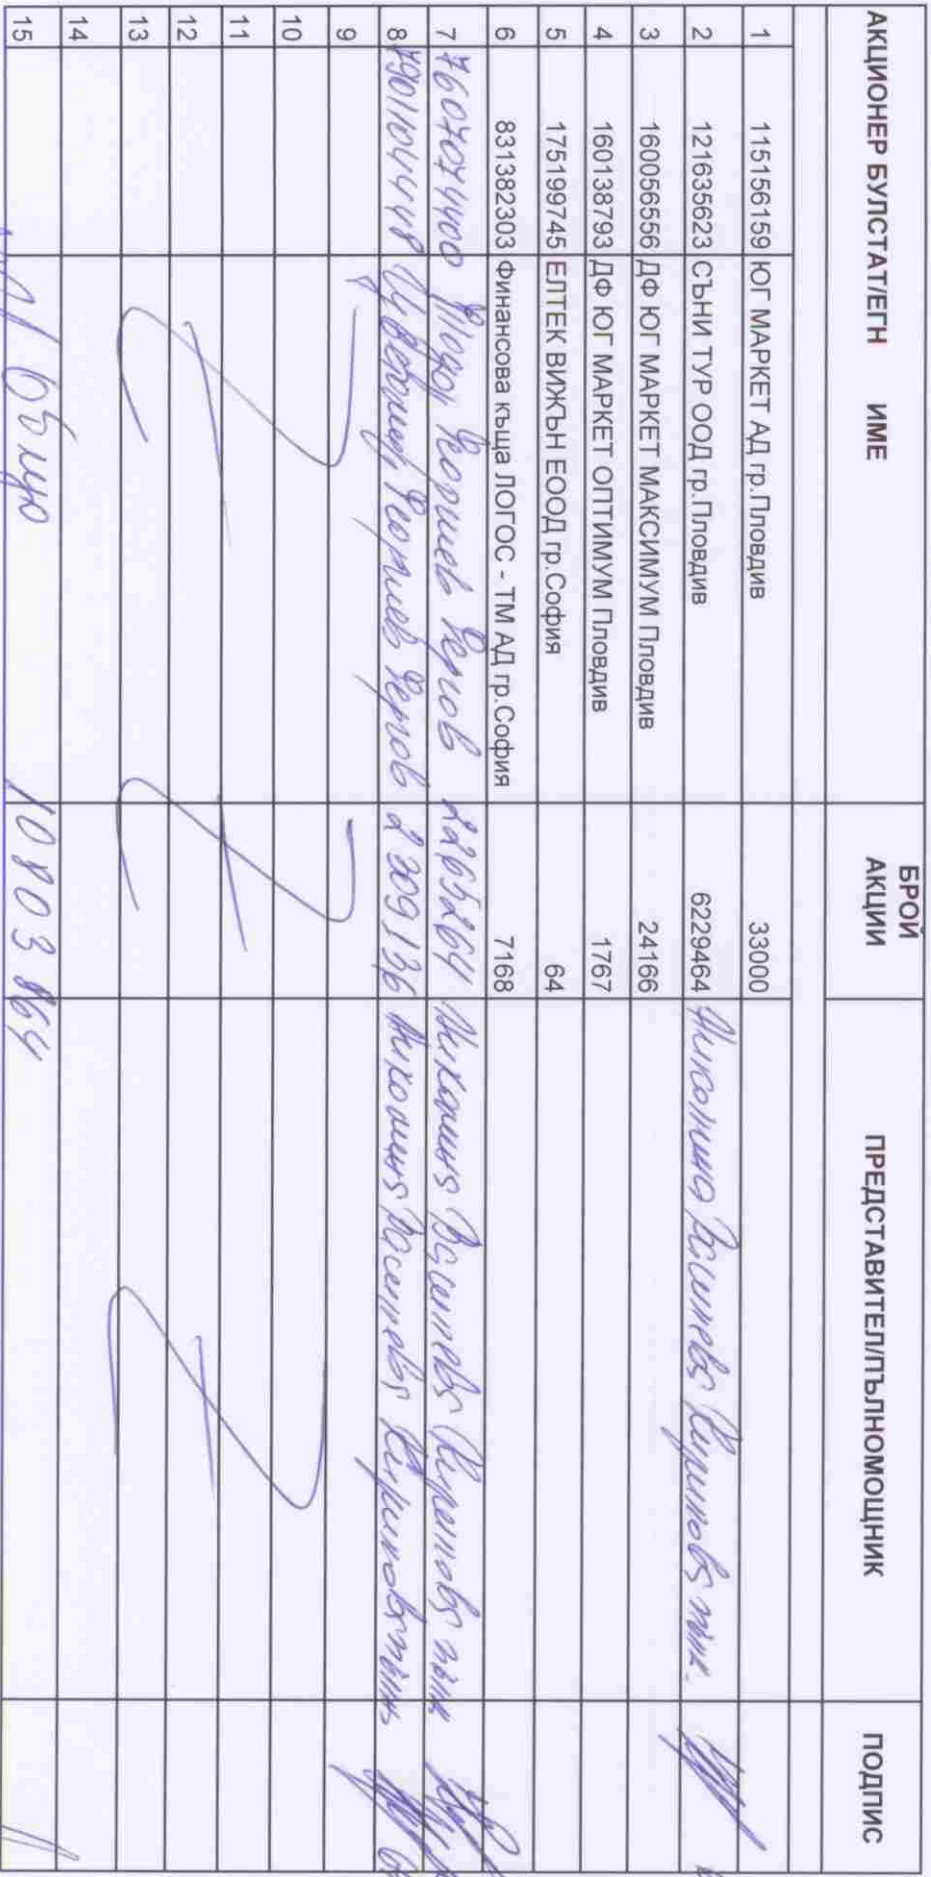 АКЦИОНЕР БУЛСТАТ/ЕГН ИМЕ БРОЙ АКЦИИ ПРЕДСТАВИТЕЛ/ПЪЛНОМОЩНИК ПОДПИС
1 115156159 ЮГ МАРКЕТ АД гр.Пловдив 33000
2 121635623 СЪНИ ТУР ООД гр.Пловдив 6229464 Николина Василева
3 160056556 ДФ ЮГ МАРКЕТ МАКСИМУМ Пловдив 24166
4 160138793 ДФ ЮГ МАРКЕТ ОПТИМУМ Пловдив 1767
5 175199745 ЕЛТЕК ВИЖЪН ЕООД гр.София 64
6 831382303 Финансова къща ЛОГОС - ТМ АД гр.София 7168
7 7607074400 Тодор Георгиев 2265264 Николина Василева
8 Цветомир Георгиев 2309136 Николина Василева
9
10
11
12
13
14
15 10803864